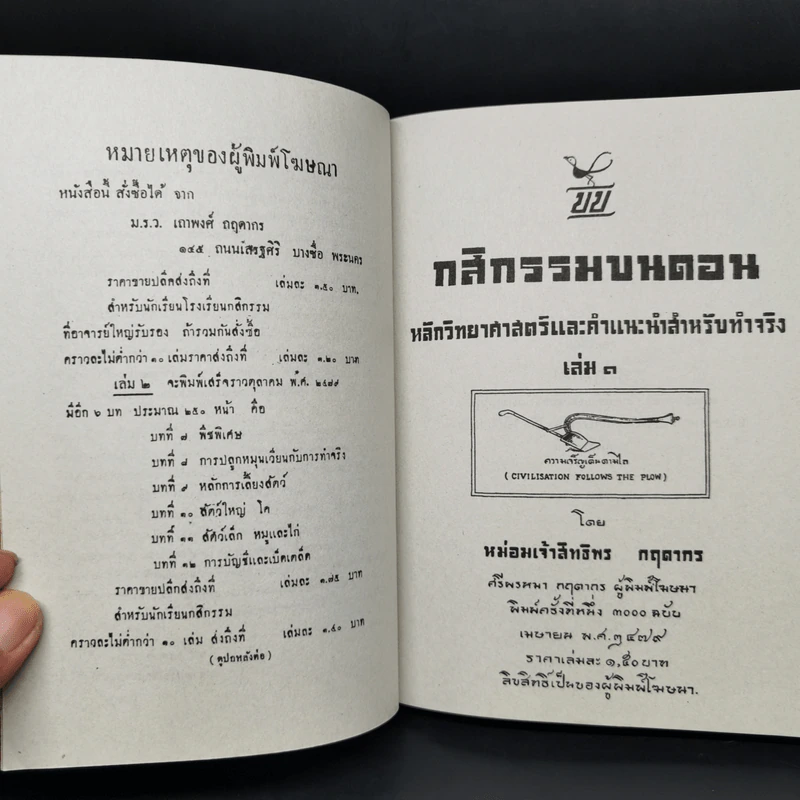 หมายเหตุของผู้พิมพ์โฆษณา
หนังสือนี้ สั่งซื้อได้ จาก
ม.ร.ว. เถาพงศ์ กฤดากร
๑๔๕ ถนนเสรฐศิริ บางซื่อ พระนคร
ราคาขายปลีกส่งถึงที่ เล่มละ ๑.๕๐ บาท.
สำหรับนักเรียนโรงเรียนกสิกรรม
ที่อาจารย์ใหญ่รับรอง ถ้ารวมกันสั่งซื้อ
คราวละไม่ต่ำกว่า ๑๐ เล่มราคาส่งถึงที่ เล่มละ ๑.๒๐ บาท
เล่ม ๒ จะพิมพ์เสร็จราวตุลาคม พ.ศ. ๒๔๗๙
มีอีก ๖ บท ประมาณ ๒๕๐ หน้า คือ
บทที่ ๗ พืชพิเศษ
บทที่ ๘ การปลูกหมุนเวียนกับการทำจริง
บทที่ ๙ หลักการเลี้ยงสัตว์
บทที่ ๑๐ สัตว์ใหญ่ โค
บทที่ ๑๑ สัตว์เล็ก หมูและไก่
บทที่ ๑๒ การบัญชีและเบ็ดเตล็ด
ราคาขายปลีกส่งถึงที่ เล่มละ ๑.๗๕ บาท
สำหรับนักเรียนกสิกรรม
คราวละไม่ต่ำกว่า ๑๐ เล่ม ส่งถึงที่ เล่มละ ๑.๔๐ บาท
(ดูปกหลังต่อ)
กสิกรรมบนดอน
หลักวิทยาศาสตร์และคำแนะนำสำหรับทำจริง
เล่ม ๑
ความเจริญเดินตามไถ
(CIVILISATION FOLLOWS THE PLOW)
โดย
หม่อมเจ้าสิทธิพร กฤดากร
ศรีพรหมา กฤดากร ผู้พิมพ์โฆษณา
พิมพ์ครั้งที่หนึ่ง ๓๐๐๐ ฉบับ
เมษายน พ.ศ.๒๔๗๙
ราคาเล่มละ ๑,๕๐บาท
ลิขสิทธิ์เป็นของผู้พิมพ์โฆษณา.